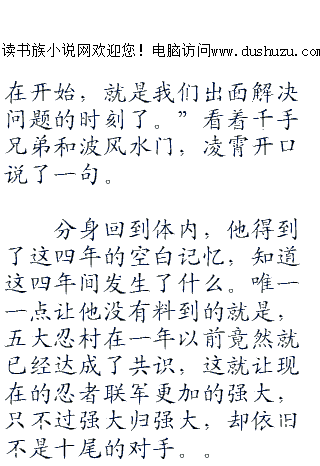 读书族小说网欢迎您！电脑访问www.dushuzu.com
在开始，就是我们出面解决
问题的时刻了。”看着千手
兄弟和波风水门，凌霄开口
说了一句。
分身回到体内，他得到
了这四年的空白记忆，知道
这四年间发生了什么。唯一
一点让他没有料到的就是，
五大忍村在一年以前竟然就
已经达成了共识，这就让现
在的忍者联军更加的强大，
只不过强大归强大，却依旧
不是十尾的对手。。